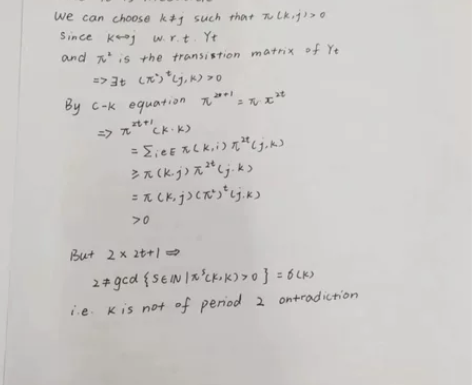 We can choose k≠j such that π(k,j)>0
Since k↔j w.r.t. Yt
and π² is the transistion matrix of Yt
=> ∃t (π²)ᵗ(j,k)>0
By C-K equation π²ᵗ⁺¹ = π·π²ᵗ
=> π²ᵗ⁺¹(k.k)
= Σᵢ∈E π(k,i) π²ᵗ(j,k)
≥ π(k.j) π²ᵗ(j.k)
= π(k,j)(π²)ᵗ(j.k)
>0
But 2 × 2t+1 =>
2 ≠ gcd {S∈IN | πˢ(k,k)>0} = δ(k)
i.e. k is not of period 2 ontradiction